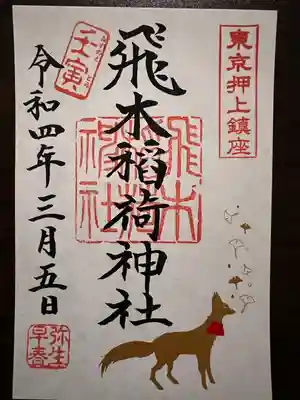 東京押上鎮座
飛木稲荷神社
飛木
稲荷
神社
壬寅
令和四年三月五日
弥生
早春